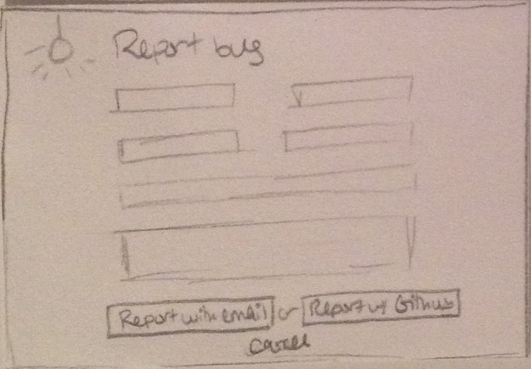 Report bug
Report with email or Report w/ Github
cancel